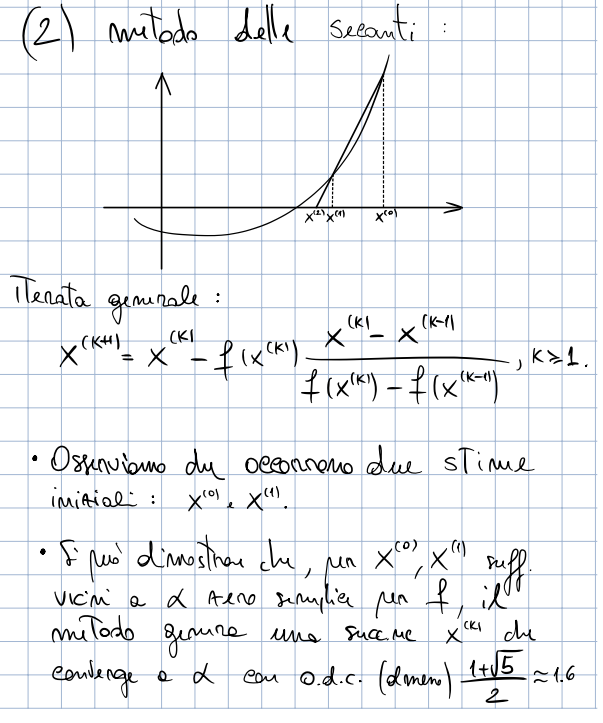 (2) metodo delle secanti :
x⁽²⁾ x⁽¹⁾ x⁽⁰⁾
Iterata generale :
x⁽ᵏ⁺¹⁾ = x⁽ᵏ⁾ - f(x⁽ᵏ⁾) (x⁽ᵏ⁾ - x⁽ᵏ⁻¹⁾) / (f(x⁽ᵏ⁾) - f(x⁽ᵏ⁻¹⁾)) , k ≥ 1.
• Osserviamo che occorrono due stime
iniziali : x⁽⁰⁾ e x⁽¹⁾.
• Si può dimostrare che, per x⁽⁰⁾, x⁽¹⁾ suff.
vicini a α zero semplice per f, il
metodo genera una succ.ne x⁽ᵏ⁾ che
converge a α con o.d.c. (almeno) (1+√5)/2 ≈ 1.6